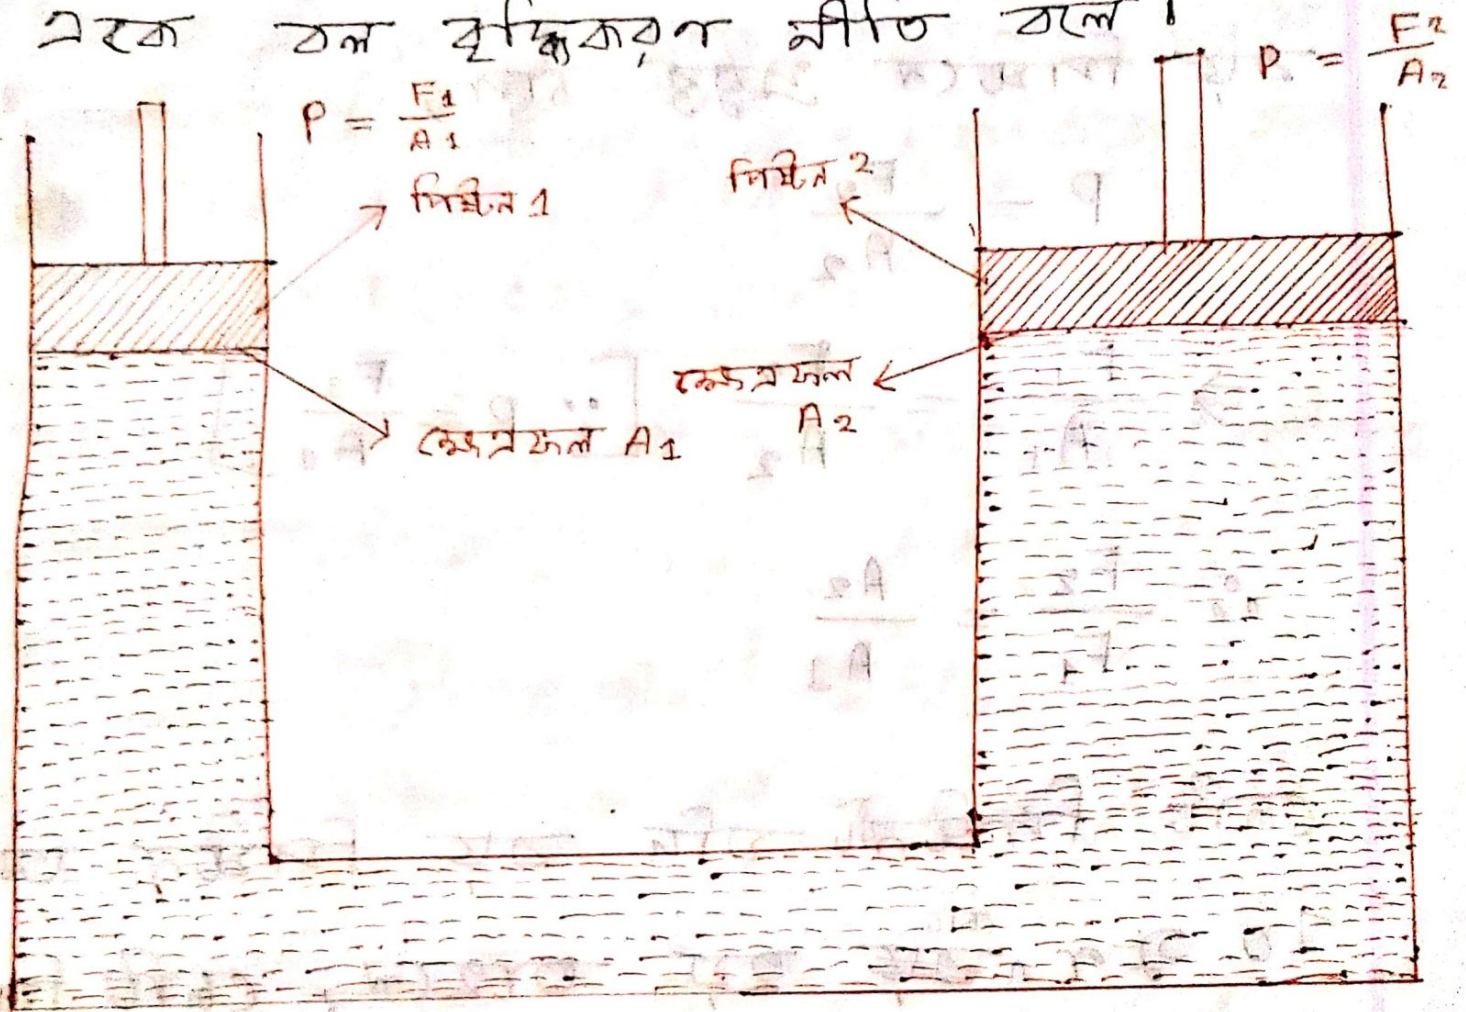 একে বল বৃদ্ধিকরণ নীতি বলে।
P = F1/A1
P = F2/A2
পিষ্টন 1
পিষ্টন 2
ক্ষেত্রফল A1
ক্ষেত্রফল
A2